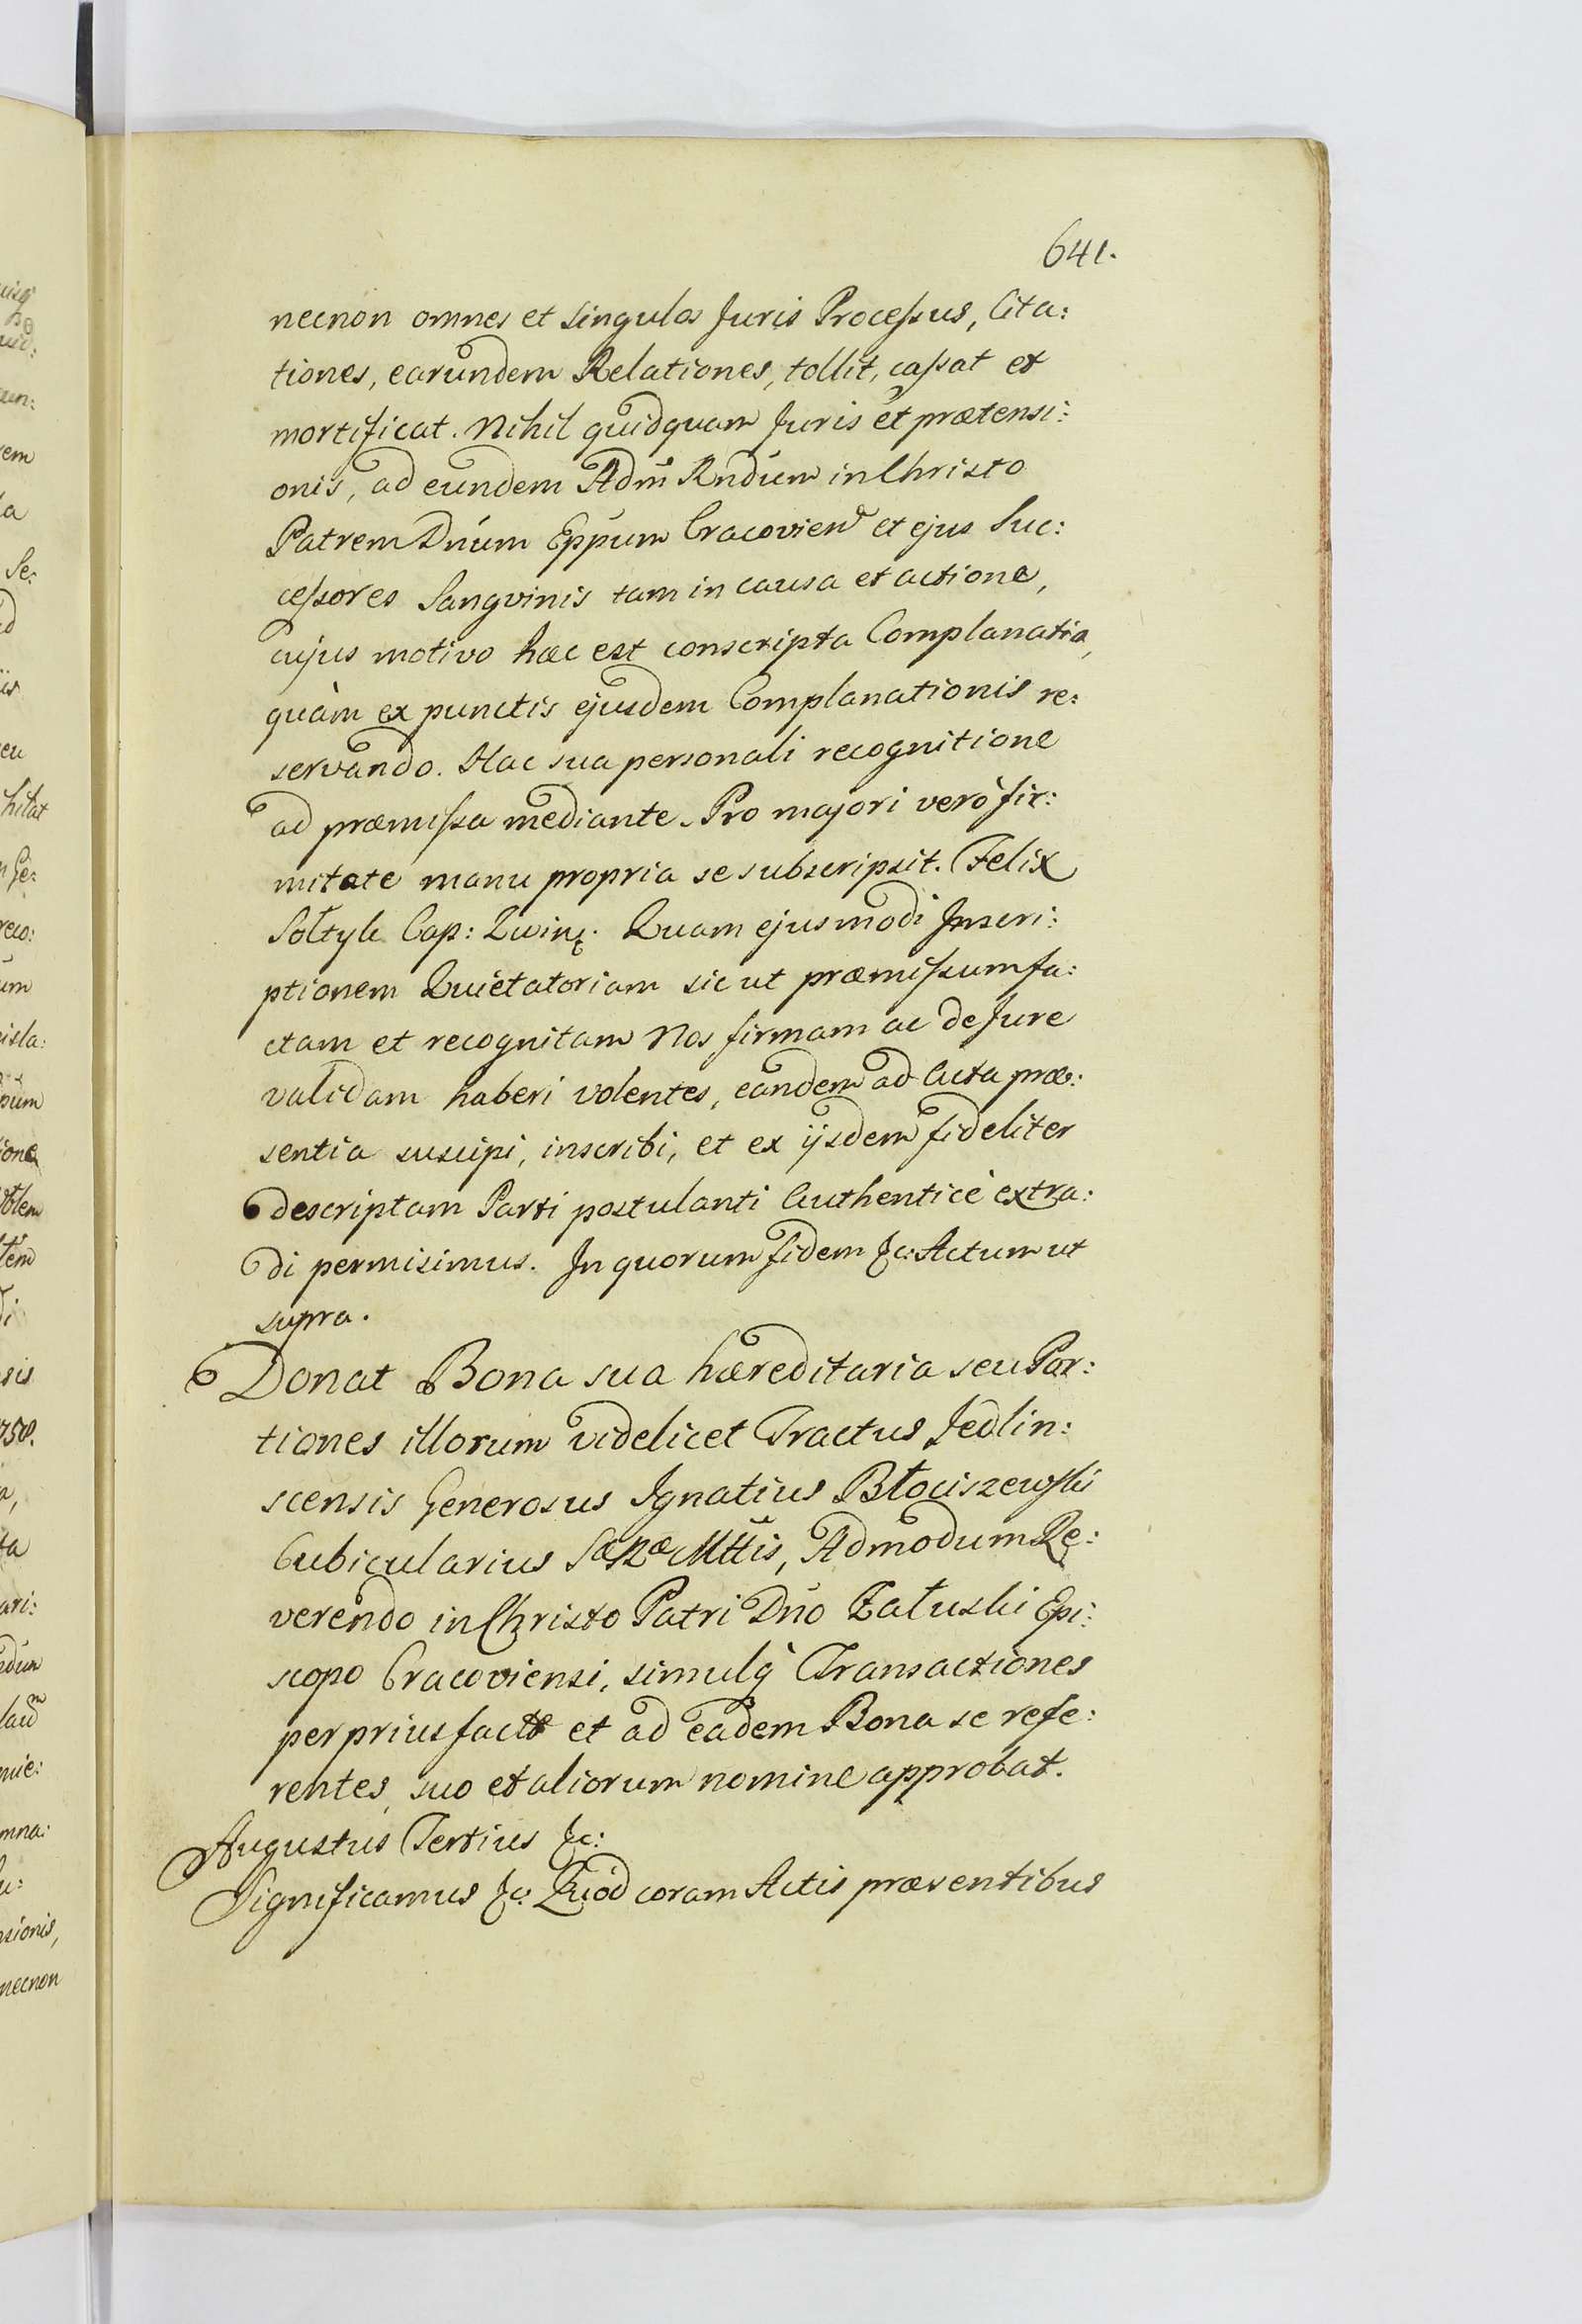 641.
necnon omnes et singulos Juris Processus, Cita:
tiones, earundem Relationes, tollit, cassat et
mortificat. Nihil quidquam Juris et prætensi:
onis, ad eundem Adm̃ Rndum in Christo
Patrem Dnum Eppum Cracovien et ejus Suc:
cessores Sangvinis tam in causa et actione,
cujus motivo hæc est conscripta Complanatio,
quàm ex punctis ejusdem Complanationis re:
servando. Hac sua personali recognitione
ad præmissa mediante. Pro majori verò fir:
mitate manu propria se subscripsit. Felix
Sołtyk Cap: Zwin. Quam ejusmodi Inscri:
ptionem Quietatoriam sic ut præmissum fa:
ctam et recognitam Nos firmam ac de Jure
validam haberi volentes, eandem ad Acta præ:
sentia suscipi, inscribi, et ex ijsdem fideliter
descriptam Parti postulanti Authenticè extra:
di permisimus. In quorum fidem &c: Actum ut
supra.
Donat Bona sua hæreditaria seu Por:
tiones illorum videlicet Tractus Jedlin:
scensis Generosus Ignatius Błociszewski
Cubicularius Sæ Ræ Mttis, Admodum Re:
verendo in Christo Patri Dño Załuski Epi:
scopo Cracoviensi, simulq̀ Transactiones
per prius factæ et ad eadem Bona se refe:
rentes, suo et aliorum nomine approbat.
Augustus Tertius &c:
Significamus &c: Quod coram Actis præsentibus